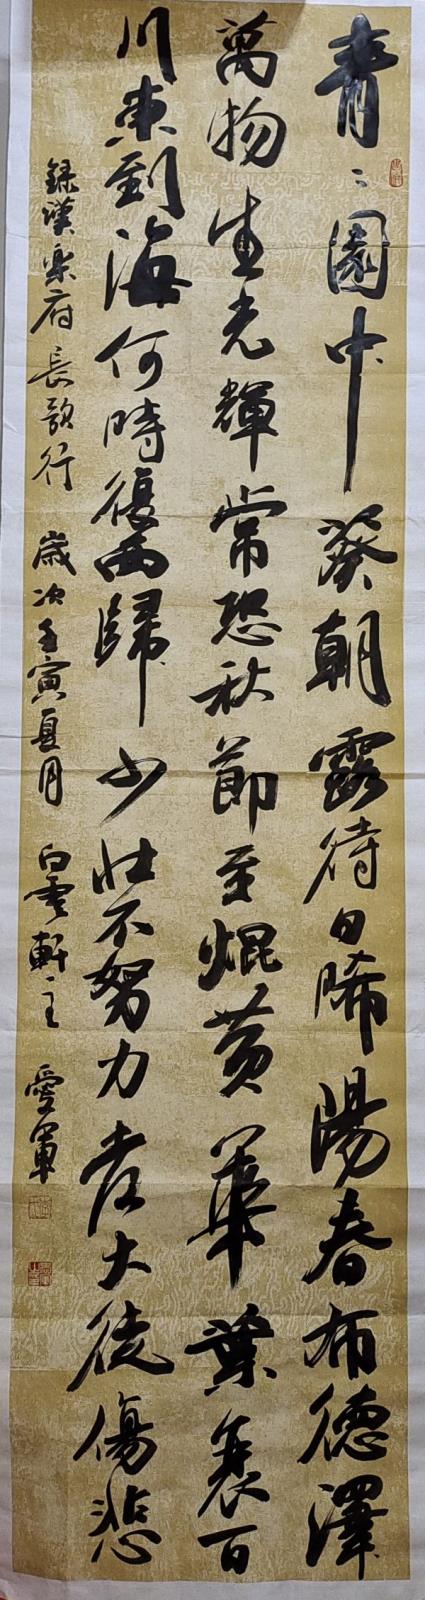 青〻園中葵朝露待日晞陽春布德澤
萬物生光輝常恐秋節至焜黃華葉衰百
川東到海何時復西歸少壯不努力老大徒傷悲
錄漢樂府長歌行 歲次壬寅夏月 白雲軒主 愛軍